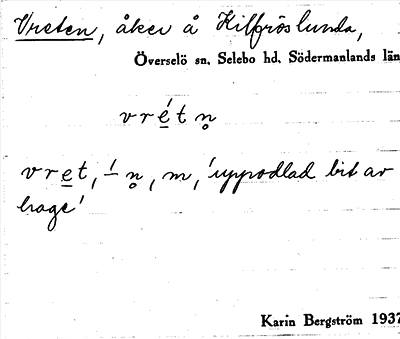 Vreten, åker å Kilfröslunda,
Överselö sn, Selebo hd, Södermanlands län
vré̲tn̥
vre̲t, -́n̥, m, 'uppodlad bit av
hage'
Karin Bergström 1937